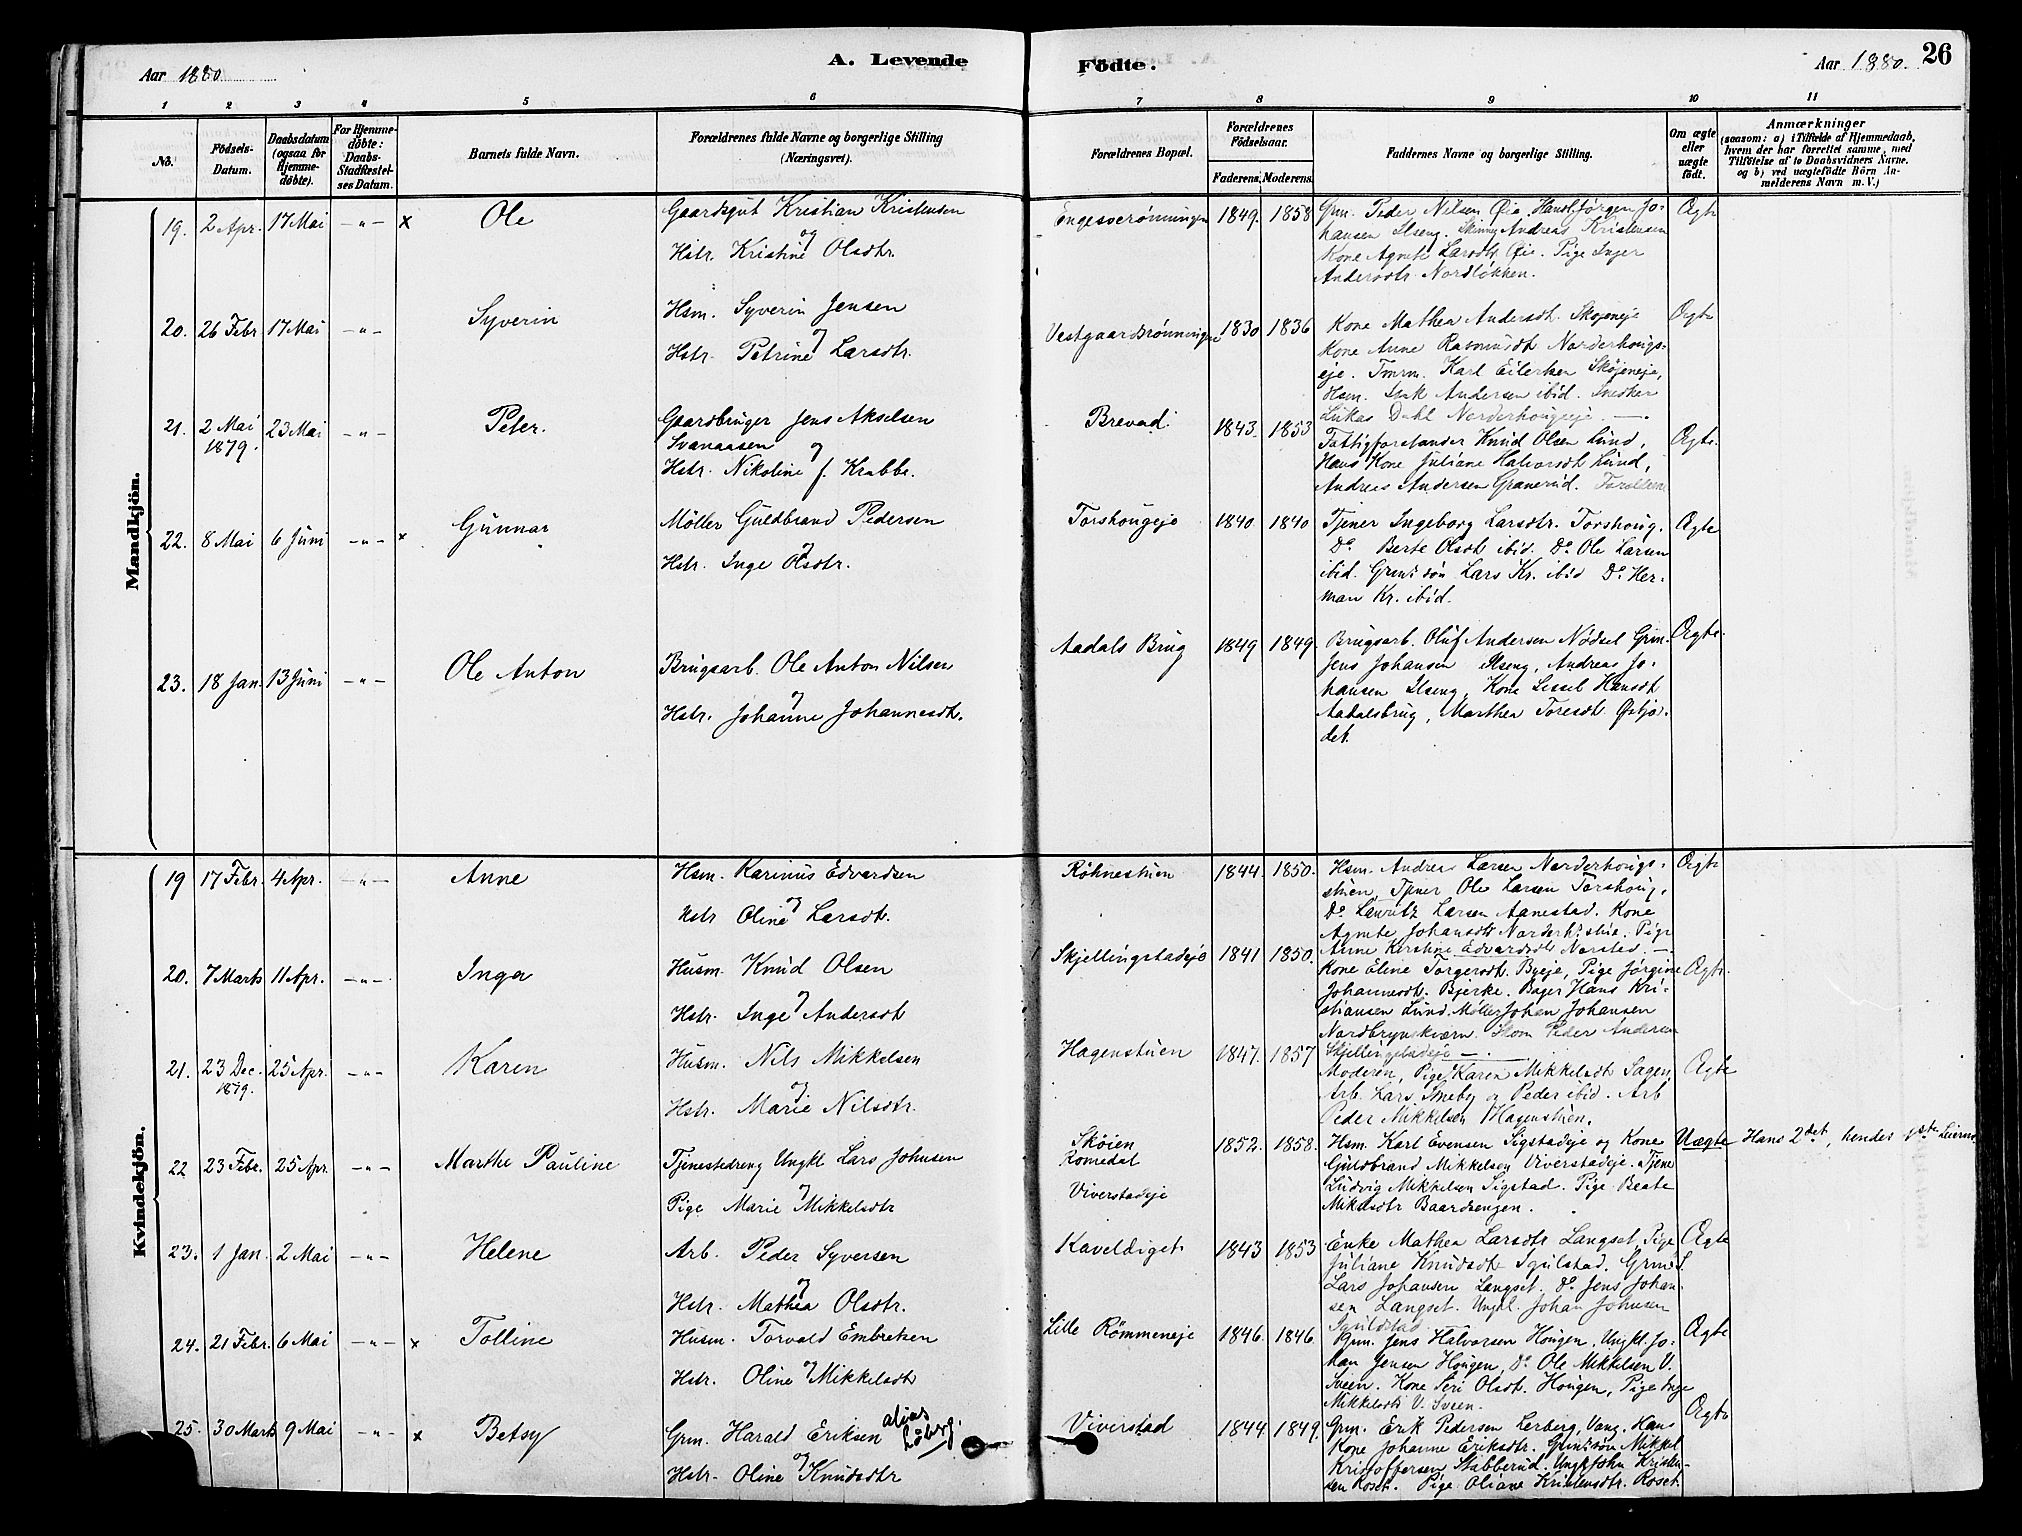 Aar 1880.
A. Levende
Födte.
Aar 1880.
26
1 2 3 4 5 6 7 8 9 10 11
No.
Födsels-Datum.
Daabsdatum (ogsaa for Hjemme-döbte).
For Hjemme-döbte: Daabs-Stadfæstel-ses Datum.
Barnets fulde Navn.
Forældrenes fulde Navne og borgerlige Stilling (Næringsvei).
Forældrenes Bopæl.
Forældrenes Födselsaar.
Faderens. Moderens.
Faddernes Navne og borgerlige Stilling.
Om ægte eller uægte födt.
Anmærkninger
(saasom: a) i Tilfælde af Hjemmedaab, hvem der har forrettet samme, med Tilföielse af to Daabsvidners Navne. og b) ved uægtefödte Börn An-melderens Navn m. V.)
Mandkjön.
19. 2 Apr. 17 Mai -"- × Ole
Gaardsgut Kristian Kristensen
og
Hstr. Kristine Olsdtr.
Engesverønningen 1849. 1858
Grm. Peder Nilsen Øie, Handl. Jørgen Jo-
hansen Ilseng. Andreas Kristensen
Kone Agnete Larsdt. Øie. Pige Inger
Andersdtr. Nordløkken.
Ægte
20. 26 Febr 17 Mai -"- Syverin
Hsm. Syverin Jensen
og
Hstr. Petrine Larsdtr.
Vestgaardsrønningen 1830 1836
Kone Mathea Andersdt. Skøjeneje
Kone Anne Rasmusdt. Norderhougs-
eje. Tmrm. Karl Eilertsen Skøjeneje,
Hsm. Andersen ibid. Snedker
Lukas Dahl Norderhougseje.
Ægte
21. 2 Mai 1879. 23 Mai -"- Peter.
Gaardbruger Jens Akselsen
Svenaasen og
Hstr. Nikoline f. Krabbe.
Brevad. 1843. 1853
Fattigforstander Knud Olsen Lund,
Hans Kone Juliane Halvorsdt. Lund,
Andreas Andersen Granerud. Forældrene
Ægte.
22. 8 Mai 6 Juni -"- × Gunnar
Møller Guldbrand Pedersen
og
Hstr. Inge Olsdtr.
Torshougeje 1840 1840
Tjener Ingeborg Larsdtr. Torshoug.
Do. Berte Olsdt. ibid. Do. Ole Larsen
ibid. Grmds. søn Lars Kr. ibid Do. Her-
man Kr. ibid.
Ægte
23. 18 Jan. 13 Juni -"- Ole Anton
Brugsarb. Ole Anton Nilsen
og
Hstr. Johanne Johannesdt.
Aadals Brug 1849 1849.
Brugsarb. Oluf Andersen Nødsel Grm.
Jens Johansen Ilseng, Andreas Jo-
hansen Ilseng, Kone Lissel Hansdt
Aadalsbrug, Marthea Toresdt.
Ægte.
Kvindekjön.
19 17 Febr. 4 Apr. -"- Anne
Hsm. Karinus Edvardsen
og
Hstr Oline Larsdt.
Röhnestuen 1844. 1850.
Hsm. Andreas Larsen Norderhougs-
stuen, Tjener Ole Larsen Torshoug,
Do. Lauritz Larsen Aanestad. Kone
Agnete Johansdt. Norderh. stue. Pige
Anne Kirstine Edvardsdt. Norstad.
Ægte
20. 7 Marts 11 Apr. -"- Inga
Husm. Knud Olsen
og
Hstr. Inge Andersdt
Skjellingstadeje 1841 1850.
Kone Eline Torgersdt. Byeje, Pige Jørgine
Johannesdt. Bjerke. Bager Hans Kri-
stiansen Lund. Møller Johan Johansen
Nordbrynskværn. Hsm Peder Andersen
Skjellingstadeje.
Ægte.
21. 23 Dec. 1879. 25 Apr. -"- Karen
Husm. Nils Mikkelsen
og
Hstr. Marie Nilsdtr.
Hagenstuen 1847. 1857
Moderen, Pige Karen Mikkelsdt Sagen
Arb. Lars Smeby og Peder ibid. Arb
Peder Mikkelsen Hagenstuen.
Ægte
22 23 Febr. 25 Apr -"- Marthe Pauline
Tjenestedreng Ungkl Lars Johnsen
og
Pige Marie Mikkelsdtr
Skøien
Romedal
Viverstadeje
1852. 1858.
Hsm. Karl Evensen Sigstadeje og Kone
Guldbrand Mikkelsen Viverstadeje. Tjener
Ludvig Mikkelsen Sigstad. Pige Beate
Mikelsdtr Baardsengen.
Uægte
Hans 2det, hendes 1ste Leierm.
23. 1 Jan. 2 Mai -"- Helene
Arb. Peder Syversen
og
Hstr. Mathea Olsdtr.
Kaveldiget 1843 1853
Enke Mathea Larsdtr Langset, Pige
Juliane Knudsdt Sgulstad. Grmds S.
Lars Johansen Langset. Do. Jens Johan-
sen Langset. Ungkl. Johan Johnsen
Sgulstad
Ægte
24. 21 Febr. 6 Mai -"- × Tolline
Husm. Torvald Embretsen
og
Hstr. Oline Mikkelsdt
Lille Rømmeneje 1846. 1846.
Grm. Jens Halvorsen Hougen, Ungkl. Jo-
han Jensen Hougen, Do. Ole Mikkelsen V.
Sveen. Kone Siri Olsdt. Hougen, Pige Inge
Mikkelsdt. V. Sveen.
Ægte
25. 30 Marts 9 Mai -"- × Betsy
Grm. Harald Eriksen alias Löberg.
og
Hstr. Oline Knudsdtr
Viverstad 1844 1849.
Grm. Erik Pedersen Lerberg, Vang, Hans
Kone Johanne Eriksdtr. Grmds. søn Mikkel
Kristoffersen Stabberud. Ungk. John Kristen-
sen Roset. Pige Oliane Kristensdtr. Roset.
Ægte